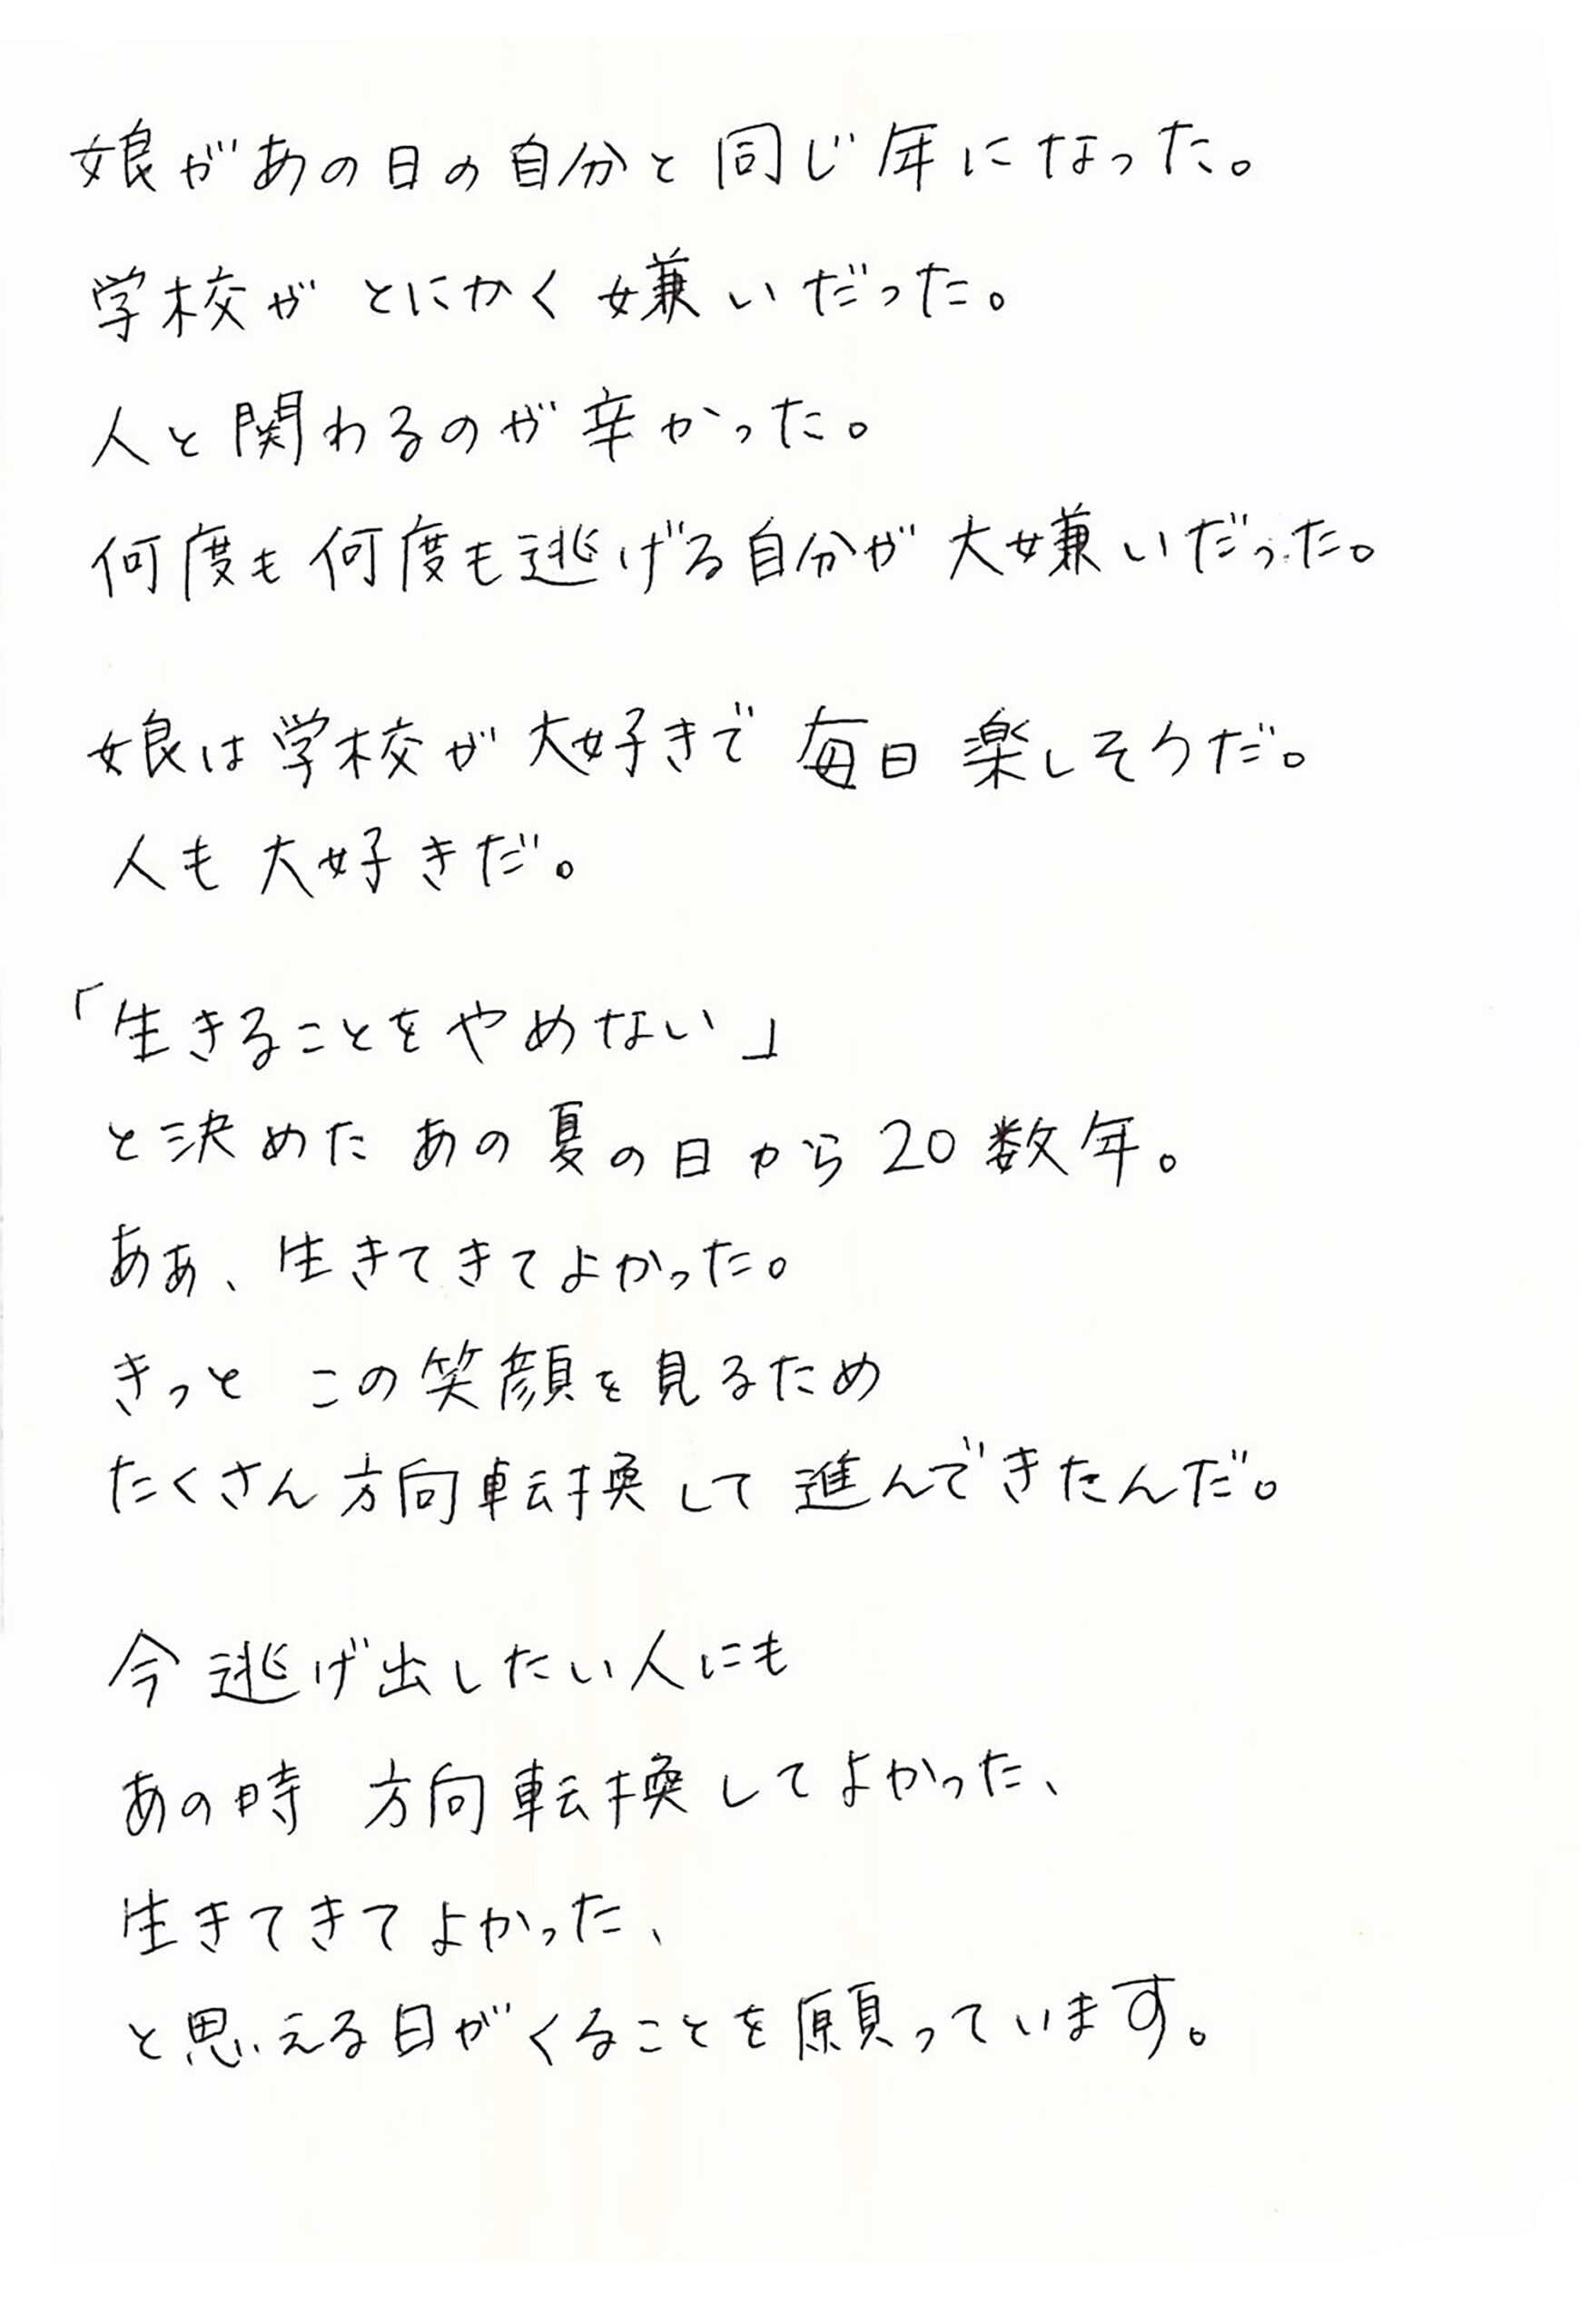 娘があの日の自分と同じ年になった。
学校がとにかく嫌いだった。
人と関わるのが辛かった。
何度も何度も逃げる自分が大嫌いだった。
娘は学校が大好きで毎日楽しそうだ。
人も大好きだ。
「生きることをやめない」
と決めたあの夏の日から20数年。
ああ、生きてきてよかった。
きっとこの笑顔を見るため
たくさん方向転換して進んできたんだ。
今逃げ出したい人にも
あの時方向転換してよかった、
生きてきてよかった、
と思える日がくることを願っています。